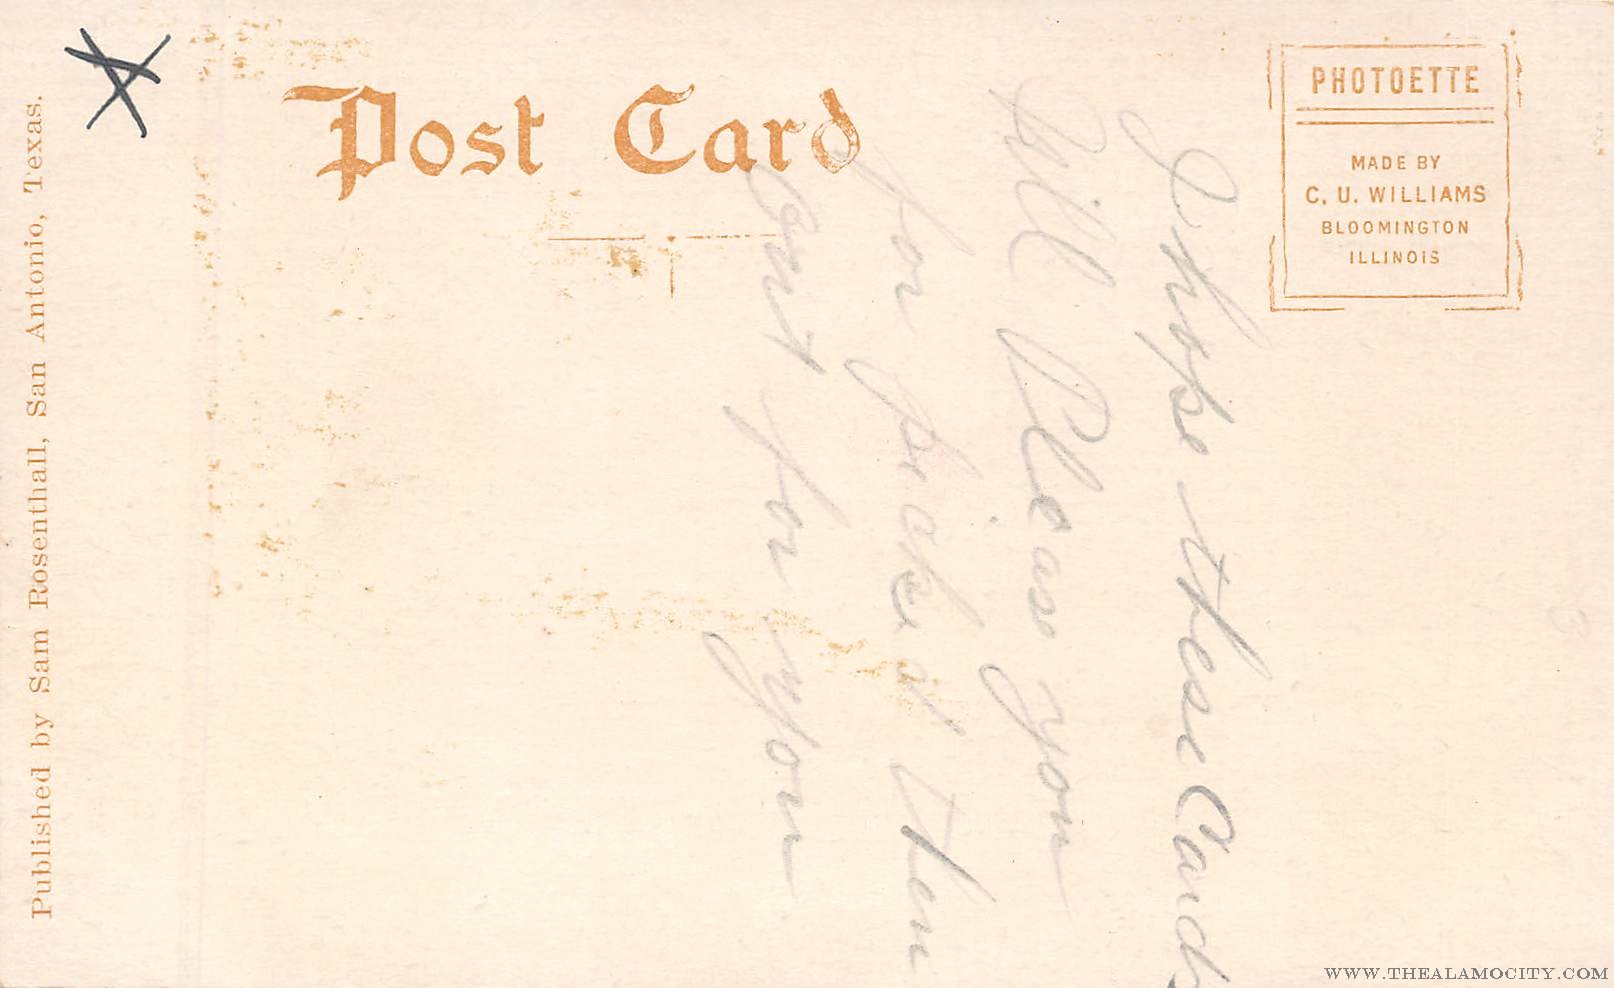 Post Card
PHOTOETTE
MADE BY
C. U. WILLIAMS
BLOOMINGTON
ILLINOIS
Published by Sam Rosenthall, San Antonio, Texas.
I hope these Cards
Will Pleas you
for I picked them
out for you
3
WWW.THEALAMOCITY.COM